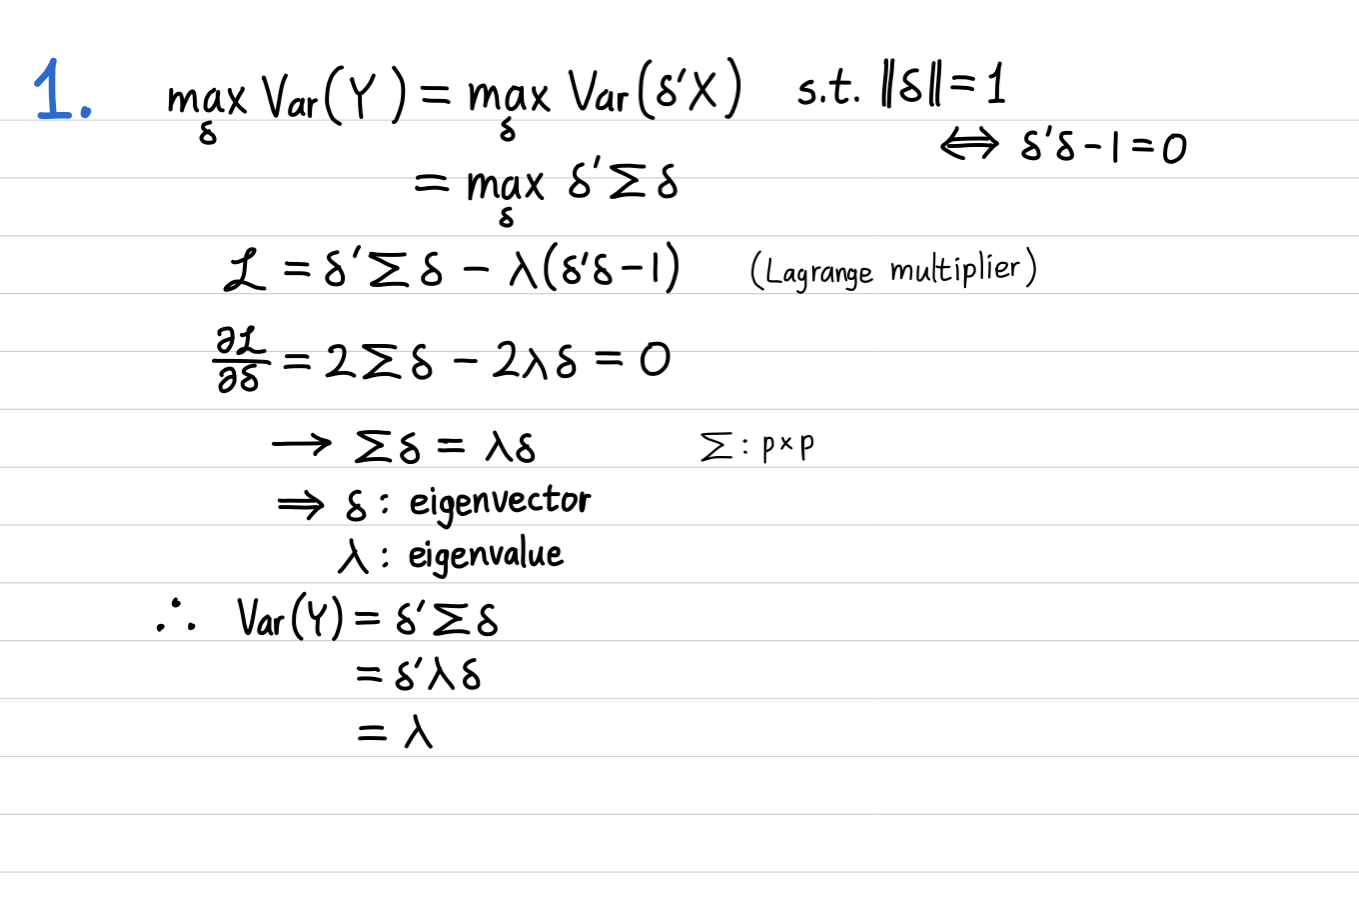 1. max_δ Var(Y) = max_δ Var(δ'X) s.t. ‖δ‖ = 1
⟺ δ'δ - 1 = 0
= max_δ δ'Σδ
ℒ = δ'Σδ - λ(δ'δ - 1) (Lagrange multiplier)
∂ℒ/∂δ = 2Σδ - 2λδ = 0
→ Σδ = λδ Σ: p×p
⇒ δ: eigenvector
λ: eigenvalue
∴ Var(Y) = δ'Σδ
= δ'λδ
= λ